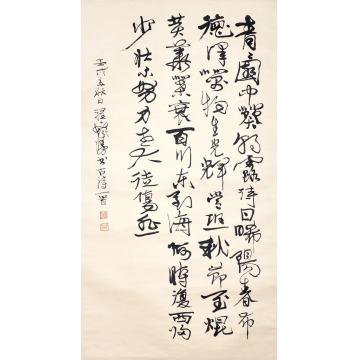 青〻園中葵朝露待日晞陽春布
德澤萬物生光輝常恐秋節至焜
黃華葉衰百川東到海何時復西歸
少壯不努力老大徒傷悲
壬戌 秋日 書古詩一首